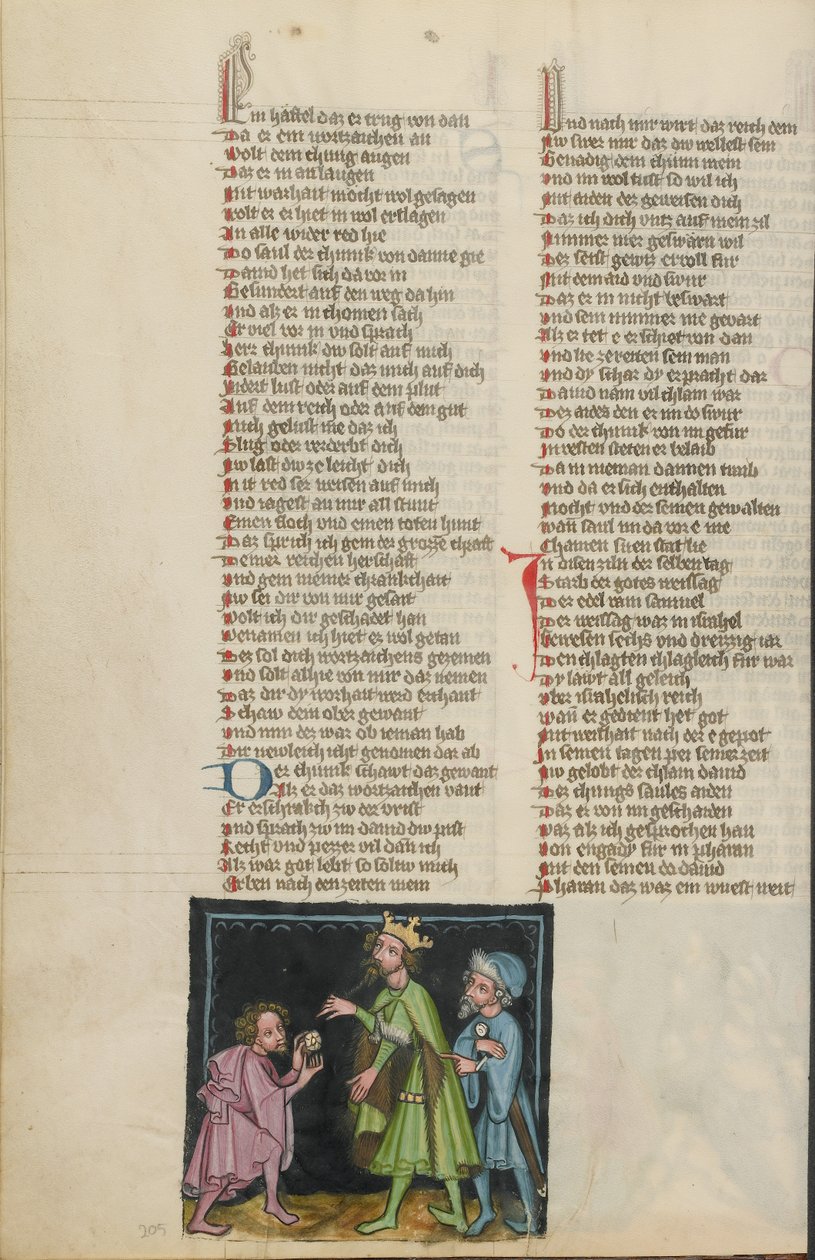 Ein häftel daz er trug von dan
Da er ein wortzaichen an
Wolt dem chunig augen
Daz er in an laugen
Mit warhait mocht wol gesagen
Wolt er er hiet in wol erslagen
An alle wider red hie
Do saul der chunik von danne gie
Dauid het sich da vor in
Gesundert auf den weg da hin
Vnd alz er in chomen sach
Er viel vor in vnd sprach
Herr chunik dw solt auf mich
Gelauben nicht daz mich auf dich
Indert lust oder auf dein plut
Auf dein reich oder auf dein gut
Mich gelust nie daz ich
Slug oder verderbt dich
Nw last dw ze leicht dich
Mit red ser weisen auf mich
Vnd iagest an mir all stunt
Einen floch vnd einen toten hunt
Daz sprich ich gein der grozze chraft
Deiner reichen herschaft
Vnd gein meiner chrankchait
Nw sei dir von mir gesait
Wolt ich dir geschadet han
Benamen ich hiet ez wol getan
Dez sol dich wortzaichens gezemen
Vnd solt alhie von mir daz nemen
Daz dir dy worhait werd erchant
Schaw dein ober gewant
Vnd nim dez war ob ieman hab
Dir newleich icht genomen dar ab
Der chunik schawt daz gewant
Alz er daz wortzaichen vant
Er erschrakch zw der vrist
Vnd sprach zw im dauid dw pist
Recht vnd pezzer vil dan ich
Alz war got lebt so soltw mich
Erben nach den zeiten mein
Vnd nach mir wirt daz reich dein
Nw swer mir daz dw wellest sein
Genadig dem chunn mein
Vnd im wol tust so wil ich
Mit aiden dez geweisen dich
Daz ich dich vntz auf mein zil
Nimmer mer geswärn wil
Dez seist gewis er voll fur
Mit dem aid vnd swur
Daz er in nicht beswart
Vnd sein nimmer me gevart
Alz er tet e er schiet von dan
Vnd lie ze reiten sein man
Vnd dy schar dy er pracht dar
Dauid nam vil chlain war
Dez aides den er im do swur
Do der chunik von im gefur
In vesten steten er belaib
Da in nieman dannen traib
Vnd da er sich enthalten
Mocht vnd der seinen gewalten
Wan saul in da vor e nie
Chomen zu en stat lie
In disen ziln der selben tag
Starb der gotes weissag
Der edel rain samuel
Der weissag waz in israhel
Gewesen sechs vnd dreizzig iar
Den chlagten chlagleich fur war
Dy lawt all geleich
Vber israhelisch reich
Wan er gedient het got
Mit weishait nach der e gepot
In seinen tagen pei seiner zeit
Nw gelobt der chlain dauid
Dez chungs saules aiden
Daz er von im geschaiden
Waz alz ich gesprochen han
Von engady fur in pharan
Mit den seinen do dauid
Pharan daz waz ein wuest weit
205